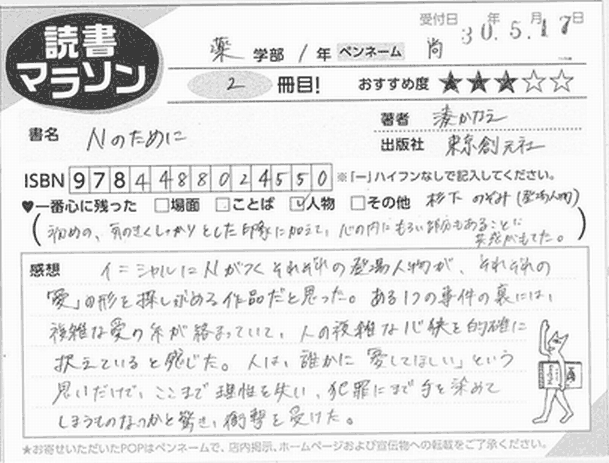 読書
マラソン
受付日 30年5月17日
薬 学部 / 1年 ペンネーム 尚
2 冊目! おすすめ度 ★★★☆☆
書名 Nのために
著者 湊かなえ
出版社 東京創元社
ISBN 9784488024550 ※「ー」ハイフンなしで記入してください。
♥一番心に残った □場面 □ことば ☑人物 □その他 杉下 のぞみ (登場人物)
(初めの、気のきくしっかりとした印象に加えて、心の内にもろい部分もあることに
共感がもてた。)
感想 イニシャルにNがつくそれぞれの登場人物が、それぞれの
「愛」の形を探し求める作品だと思った。ある1つの事件の裏には、
複雑な愛の糸が絡まっていて、人の複雑な心候を的確に
捉えていると感じた。人は、誰かに「愛してほしい」という
思いだけで、ここまで理性を失い、犯罪にまで手を染めて
しまうものなのかと驚き、衝撃を受けた。
★お寄せいただいたPOPはペンネームで、店内掲示、ホームページおよび宣伝物への転載をご了承ください。